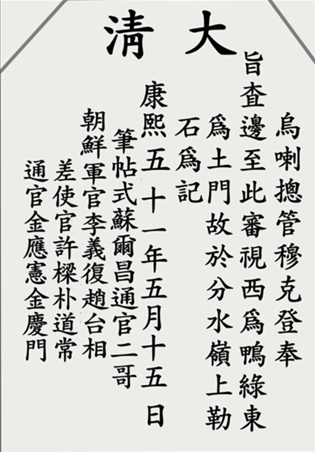 大清
烏喇摠管穆克登奉
旨査邊至此審視西爲鴨綠東
爲土門故於分水嶺上勒
石爲記
康熙五十一年五月十五日
筆帖式蘇爾昌通官二哥
朝鮮軍官李義復趙台相
差使官許樑朴道常
通官金應憲金慶門